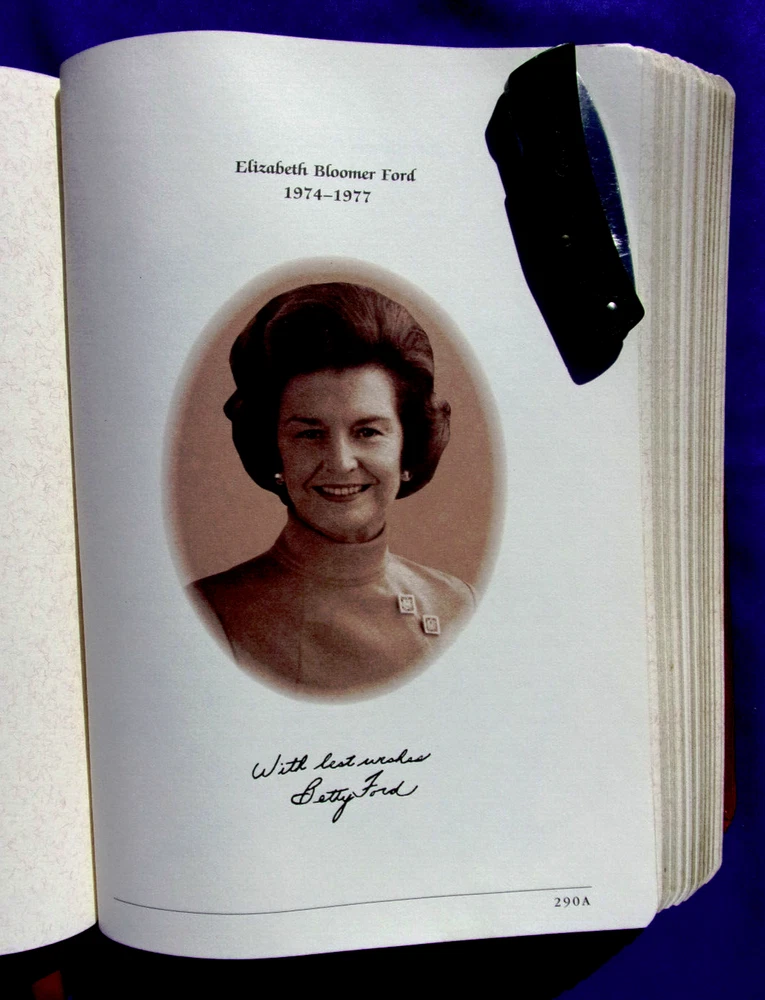 Elizabeth Bloomer Ford
1974–1977
With best wishes
Betty Ford
290A